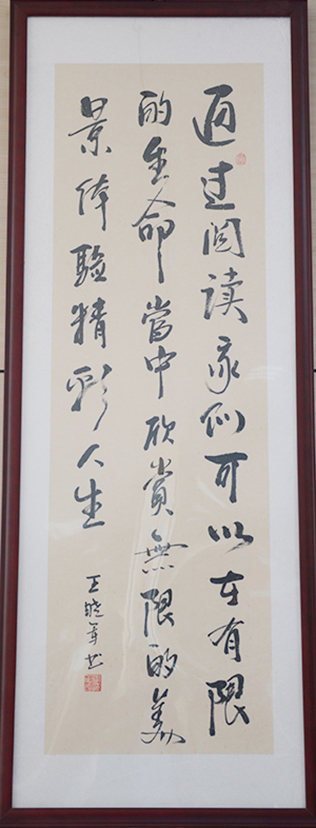 通过阅读我们可以在有限
的生命當中欣赏無限的美
景体驗精彩人生
王晓军书